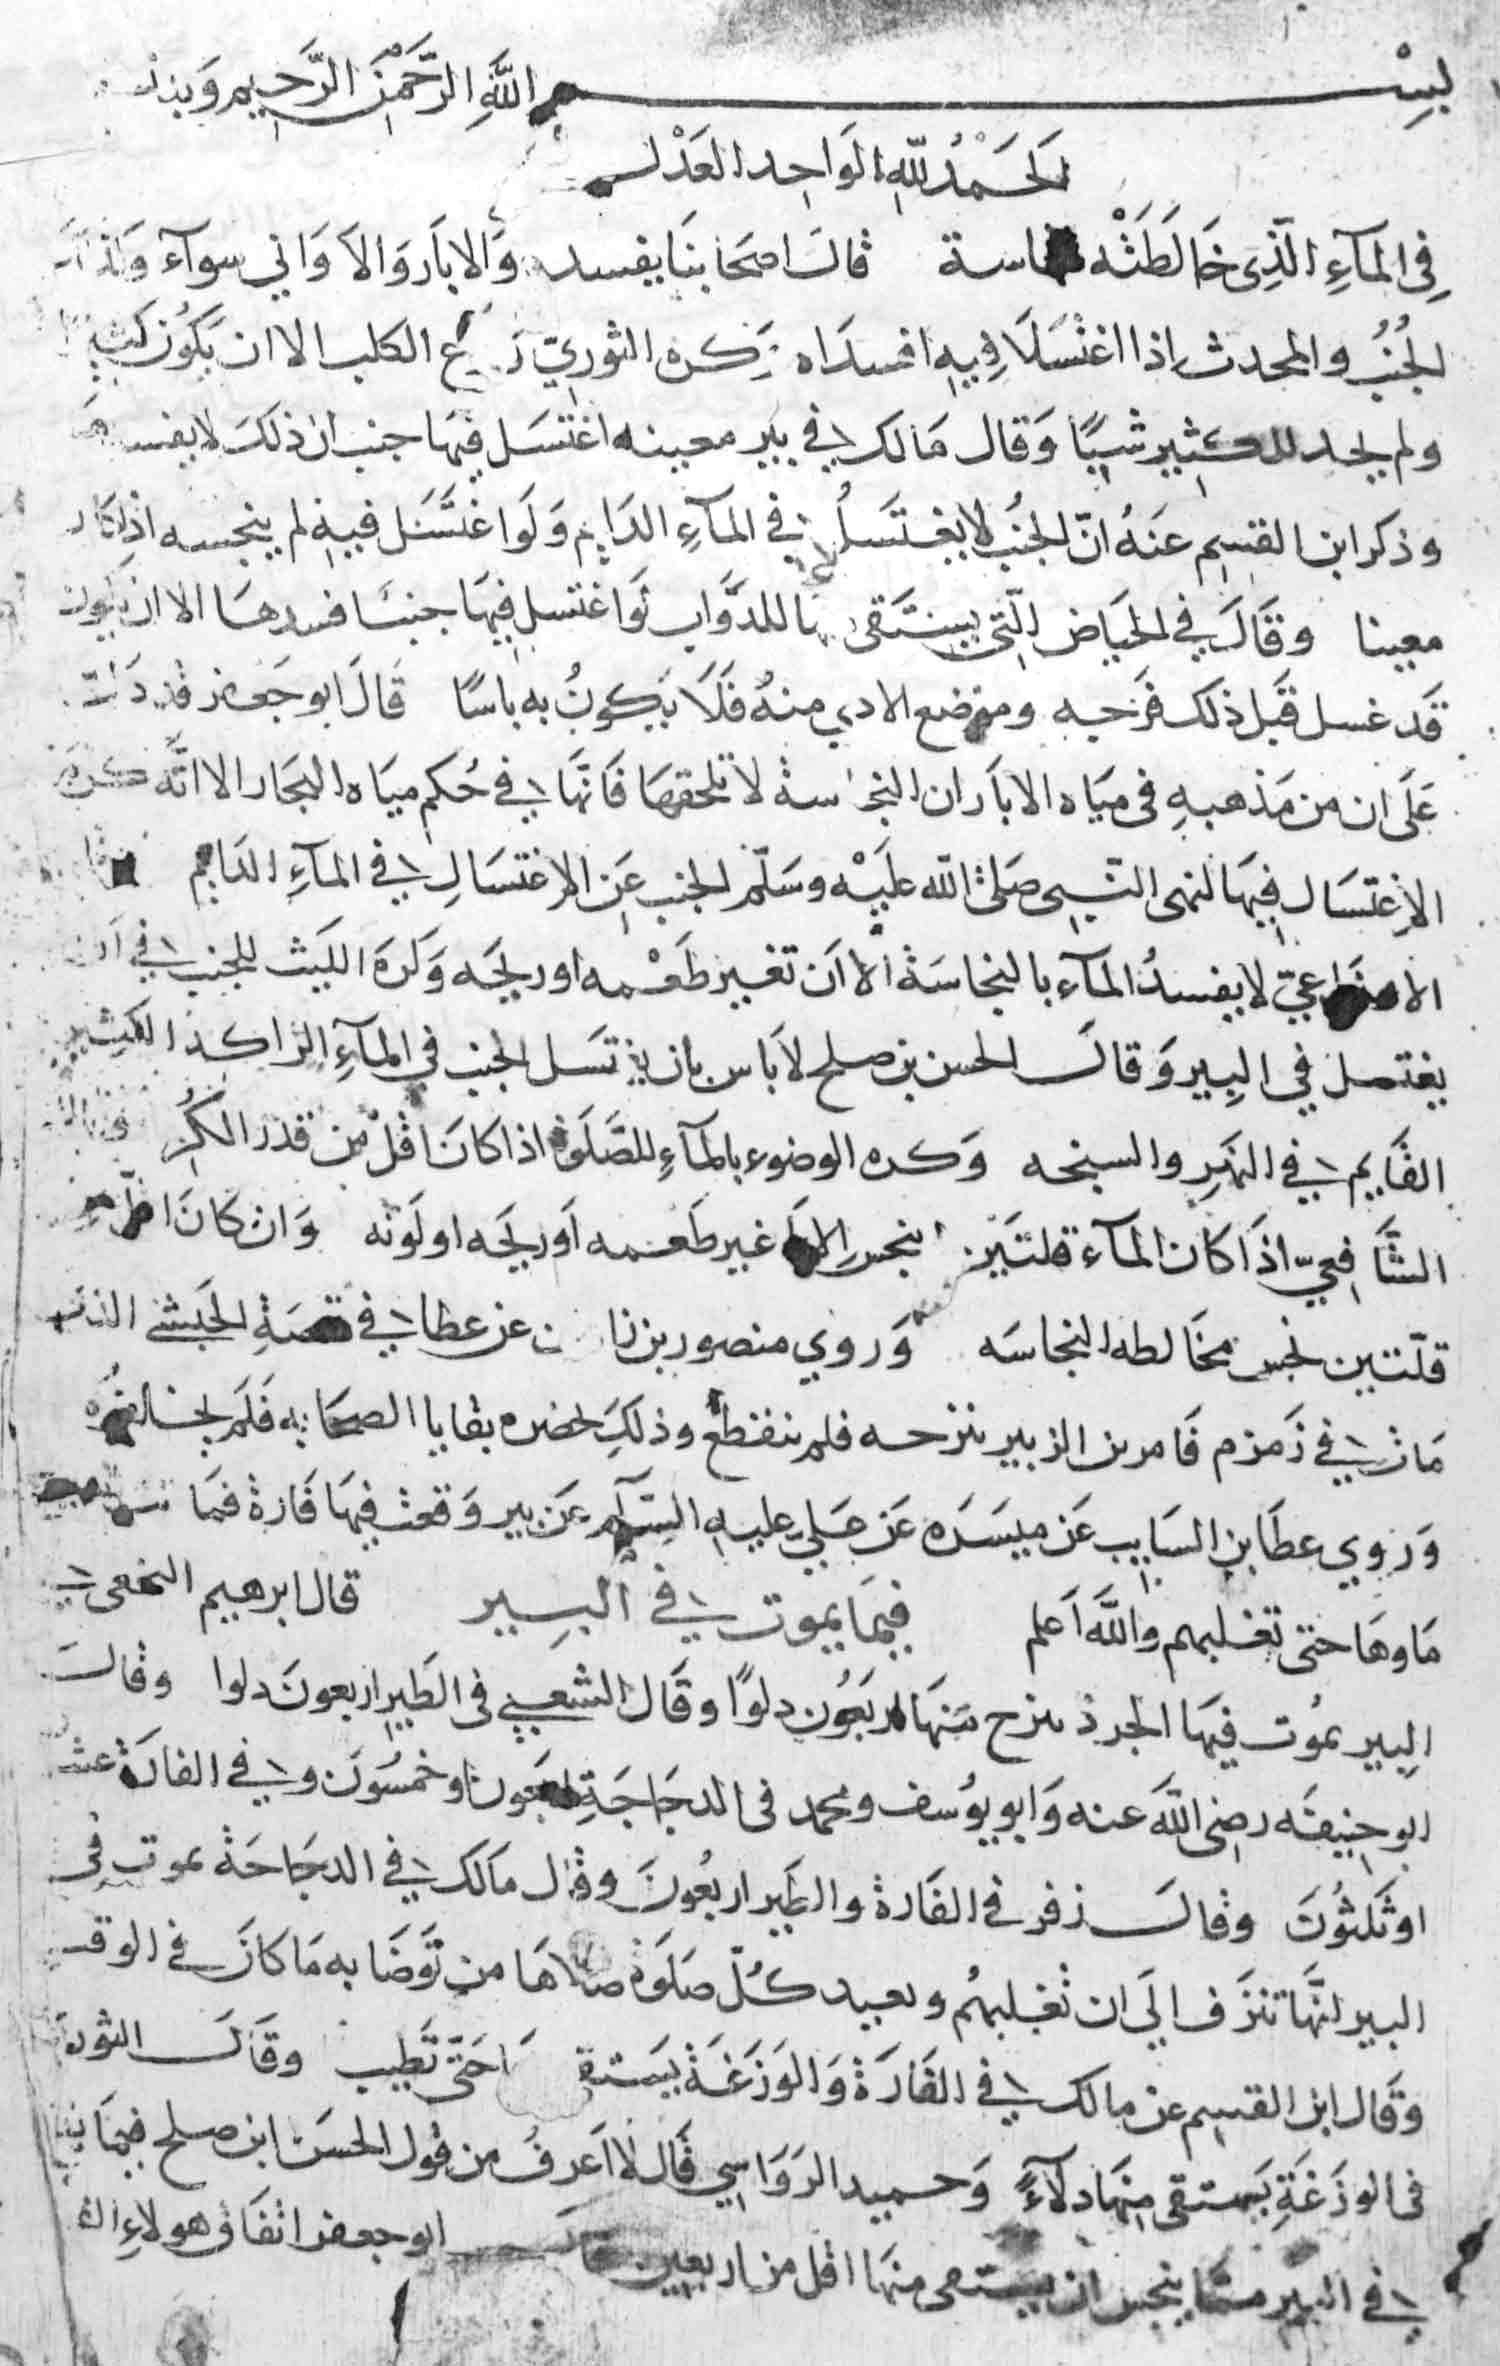 بِسْم اللَّهِ الرَّحْمَنِ الرَّحِيمِ وَبِهِ
الحَمْدُ للّهِ الوَاحِد العَدْل
فِي المَآءِ الَّذِي خَالَطَتْه نجاسة قالَ اصحَابنَا يفسد وَالابَار وَالاَوَاني سوآء وَ
الجُنُبُ والمحدث اذا اغتَسَلَا فِيهِ افسدَاه وكره الثوريّ الكلب الا ان يَكُون
ولم يحد للكثير شيًا وَقال مَالك في بير معينه اغتسَل فيهَا جنب ان ذلكَ لا يفسدها
وذكر ابن القسِم عَنهُ انّ الجنُب لا يغتَسَلُ في المآءِ الدَايِم وَلَو اغتَسَل فِيهِ لم ينجسه اذا كان
معينا وقَالَ في الحيَاض التي يستَقى منها للدوَّاب لَو اغتسل فِيهَا جنب افسدهَا الا ان يكون
قَد غسل قبَل ذلك فَرجه وموضع الاذي منهُ فَلَا يَكونُ به باسًا قالَ ابو جَعفر
عَلَى ان من مَذهبهِ في ميَاه الابَار ان النجاسة لا تلحقهَا فَانّهَا في حُكم ميَاه البحَار الا انَّه كره
الاِغتسَال فيهَا لنهى النَّبِي صَلى اللّه عليَهْ وسَلّم الجنب عَن الاغتسَالِ في المَآءِ الدَايم وقال
الاوزاعيّ لا يفسدُ المآء بالنجاسَة الا اَن تغير طَعْمه او ريحَه وَكَرهَ الليَث للجنب
يغتسل في البِير وَقالَ الحسن بن صلح لاَ باس بان يغتسَل الجنب في المآءِ الراكد الكثير
القَايم في النهَر والسبخه وَكره الوضوء بالمآءِ للصَّلَوة اذا كانَ اقلّ من قدر الكُر
الشَّافِعيّ اذَا كان المآء قلتَين ينجس الا غير طَعمه اَو ريحَه او لَونه وَان كَانَ اقل من
قلّتين نجس بمخَالطه النجاسَه وَروي منصور بن عن عطا في قصَةِ الحَبشي الذي
مَات في زَمزم فَامر بن الزبير بنزحه فلم ينقطع وذلكَ بحضره بقايا الصحَابه فَلَم
وَروي عطَا بن السَايب عَن ميسَرَه عَن عَليّ عليهِ السّلَم عَن بير وَقعت فيهَا فَارة فمَاتت
مَاوهَا حتى تغلبهم واللَّه اَعلم فِيمَا يموت في البِير قال ابرهيم النخعي في
البِير يمُوت فيهَا الجرذ ينزح منهَا اربَعُون دلوًا وقَال الشعبي في الطَير اربعونَ دلوا وقالَ
ابو حَنيفَه رضى اللَّه عنه وَابو يوُسف ومحمد في الدجَاجَةِ اربعون او خمسُونَ وفي الفارَة عشرون
او ثَلثُونَ وقالَ زفر في الفَارة والطَير اربعُونَ وقال مَالك في الدجَاجَة تموت في
البير انّهَا تنزَف الَي ان تغلبهُم ويعيد كُلّ صَلَوة صَلاهَا من تَوضَا به مَا كَان في الوقت
وقَال ابن القسِم عن مالك في الفَارَة وَالوَزَغَة يَستقى حَتّى تَطيب وقَالَ الثوري
في الوزَغَةِ يَستقى مِنهَا دلآءً وَحميد الرَوَاسِي قَال لا اَعرفُ من قول الحسَن ابن صلح فيمَا
في البير ممَا ينجس ان يستقى منهَا اقل من اربعين قالَ ابو جعفر اتفَاق هولاءِ